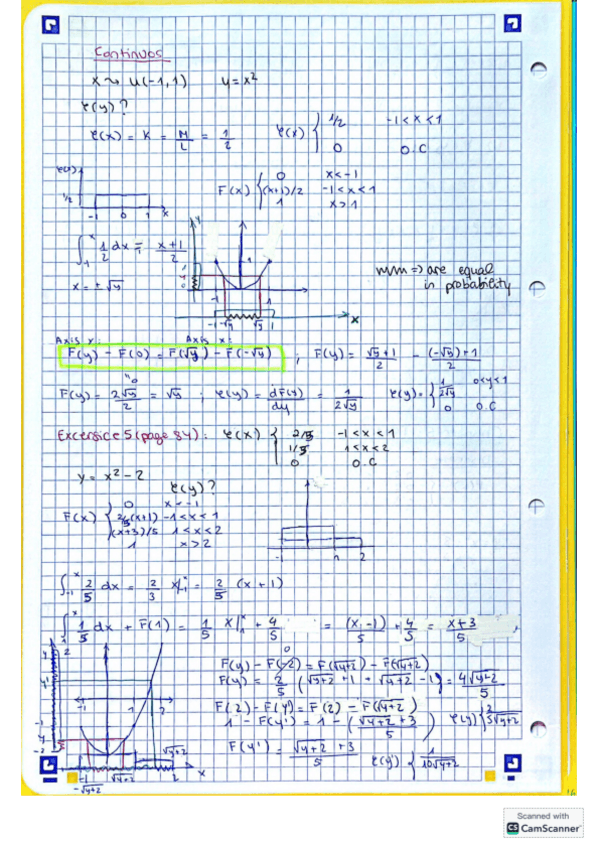 Continuos
x ~ U(-1,1)    y = x²
φ(y)?
φ(x) = K = M/L = 1/2    φ(x) { 1/2   -1<x<1
0   O.C
φ(x)
1/2
-1 0 1 x
F(x) { 0   x<-1
(x+1)/2   -1<x<1
1   x>1
∫₋₁ˣ 1/2 dx = (x+1)/2
x = ± √y
-1 -√y √y 1
x
=> are equal
in probability
Axis y:    Axis x:
F(y) - F(0) = F(√y) - F(-√y) ; F(y) = (√y+1)/2 - ((-√y)+1)/2
F(y) = 2√y/2 = √y ; φ(y) = dF(y)/dy = 1/(2√y)    φ(y) = { 1/(2√y)   0<y<1
0   O.C
Excersice 5 (page 84): φ(x) { 2/5   -1<x<1
1/5   1<x<2
0   O.C
y = x² - 2
φ(y)?
F(x) { 0   x<-1
2/5(x+1)   -1<x<1
(x+3)/5   1<x<2
1   x>2
∫₋₁ˣ 2/5 dx = 2/3 x|₋₁ˣ = 2/5 (x+1)
∫₁ˣ 1/5 dx + F(1) = 1/5 x|₁ˣ + 4/5 = (x-1)/5 + 4/5 = (x+3)/5
F(y) - F(-2) = F(√y+2) - F(-√y+2)
F(y) = 2/5 (√y+2 + 1 + √y+2 - 1) = 4√y+2/5
F(2) - F(y') = F(2) - F(√y+2)
1 - F(y') = 1 - ((√y+2 + 3)/5)    φ(y) {
F(y') = (√y+2 + 3)/5    φ(y') { 1/(10√y+2)
-1 √y+2 2 x
-√y+2
Scanned with
CS CamScanner